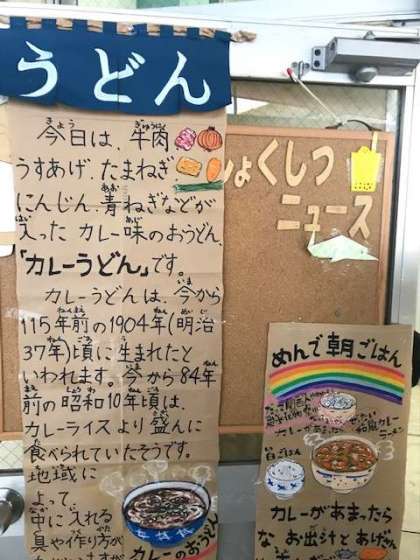 うどん
今日は、牛肉
うすあげ、たまねぎ
にんじん、青ねぎなどが
入った カレー味のおうどん、
「カレーうどん」です。
カレーうどんは、今から
115年前の1904年(明治
37年)頃に生まれたと
いわれます。今から84年
前の昭和10年頃は、
カレーライスより盛んに
食べられていたそうです。
地域に
よって、
中に入れる
具や作り方が
カレーのおうどん
しょくしつ
ニュース
めんで朝ごはん
カレーがあまったら
和風カレー
ラーメン
白ごはん
カレーがあまったら
な お出汁と あげが